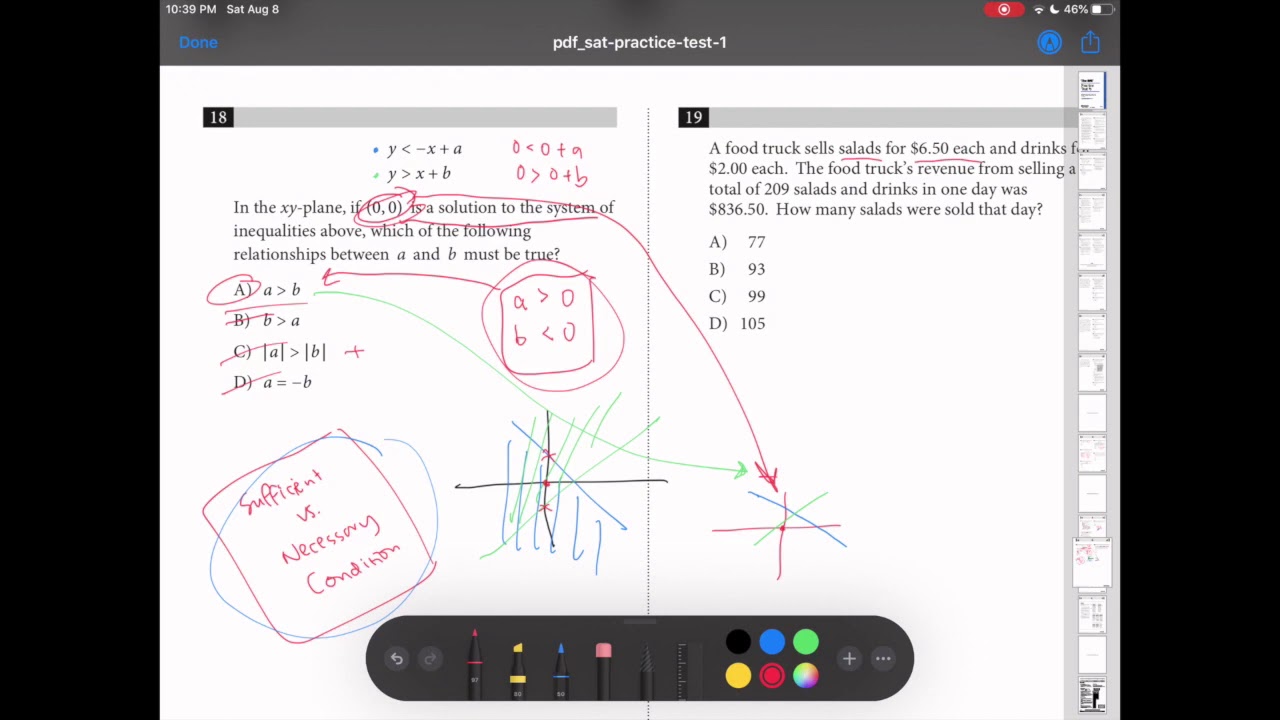 10:39 PM Sat Aug 8
46%
Done
pdf_sat-practice-test-1
18
y < −x + a
y > x + b
0 < 0 + a
0 > 0 + b
In the xy-plane, if (0, 0) is a solution to the system of
inequalities above, which of the following
relationships between a and b must be true?
A) a > b
B) b > a
C) |a| > |b|
D) a = −b
a > 0
b < 0
Sufficient
vs.
Necessary
Condition
19
A food truck sells salads for $6.50 each and drinks f
$2.00 each. The food truck's revenue from selling a
total of 209 salads and drinks in one day was
$836.50. How many salads were sold that day?
A) 77
B) 93
C) 99
D) 105
97
80
50